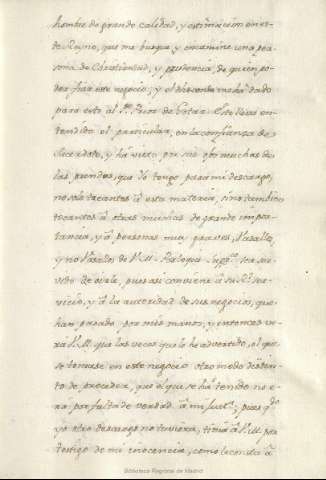 hombre de grande calidad, y estimacion en es-
te Reyno, que me busque y encamine una per-
sona de Christiandad, y prudencia, de quien po-
der fiar este negocio; y el dho conde me ha dado
para esto al Pe. Prior de Gotor. Este lleva en-
tendido el particular, en la confianza de
Sacerdote, y ha visto por sus ojos muchas de
las prendas, que Yo tengo para mi descargo,
no solo tocantes a esta materia, sino tambien
tocantes a otras muchas de grande impor-
tancia, y a personas muy graves, Vasallos,
y no Vasallos de V. M. A el ogora suppco. sea ser-
vido de oirle, pues asi conviene a su Rl. ser-
vicio, y a la autoridad de sus negocios, que
han pasado por mis manos, y entonces ve-
ra V. M. que las veces que le he advertido, el que
se tomase en este negocio otro modo distin-
to de proceder, que el que se ha tenido no e-
ra por falta de verdad a mi Just.; pues qdo
yo otro descargo no tuviera, tenia a V. M. por
testigo de mi inocencia, como lo consta a
Biblioteca Regional de Madrid